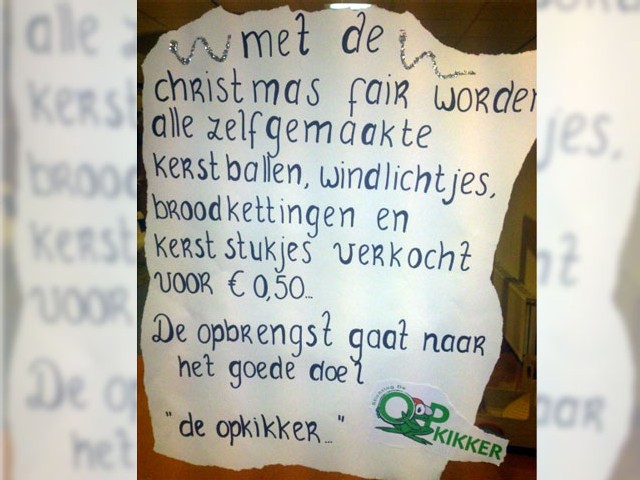 met de
christmas fair worden
alle zelfgemaakte
kerstballen, windlichtjes,
broodkettingen en
kerststukjes verkocht
voor € 0,50...
De opbrengst gaat naar
het goede doel
"de opkikker..."
Stichting De
OPKIKKER